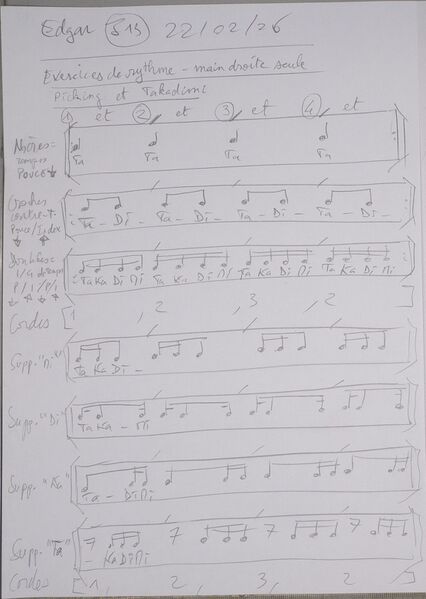 Edgar S13 22/02/26
Exercices de rythme - main droite seule
Picking et Takadimi
1 et 2 et 3 et 4 et
Noires = temps Pouce ↓
Ta Ta Ta Ta
Croches contre-t. Pouce/Index
Ta - Di - Ta - Di - Ta - Di - Ta - Di -
1/4 de temps P/I/P/I
Ta Ka Di Mi Ta Ka Di Mi Ta Ka Di Mi Ta Ka Di Mi
Cordes [1, 2, 3, 2]
Supp. "Mi"
Ta Ka Di -
Supp. "Di"
Ta Ka - Mi
Supp. "Ka"
Ta - Di Mi
Supp. "Ta"
- Ka Di Mi
Cordes [1, 2, 3, 2]